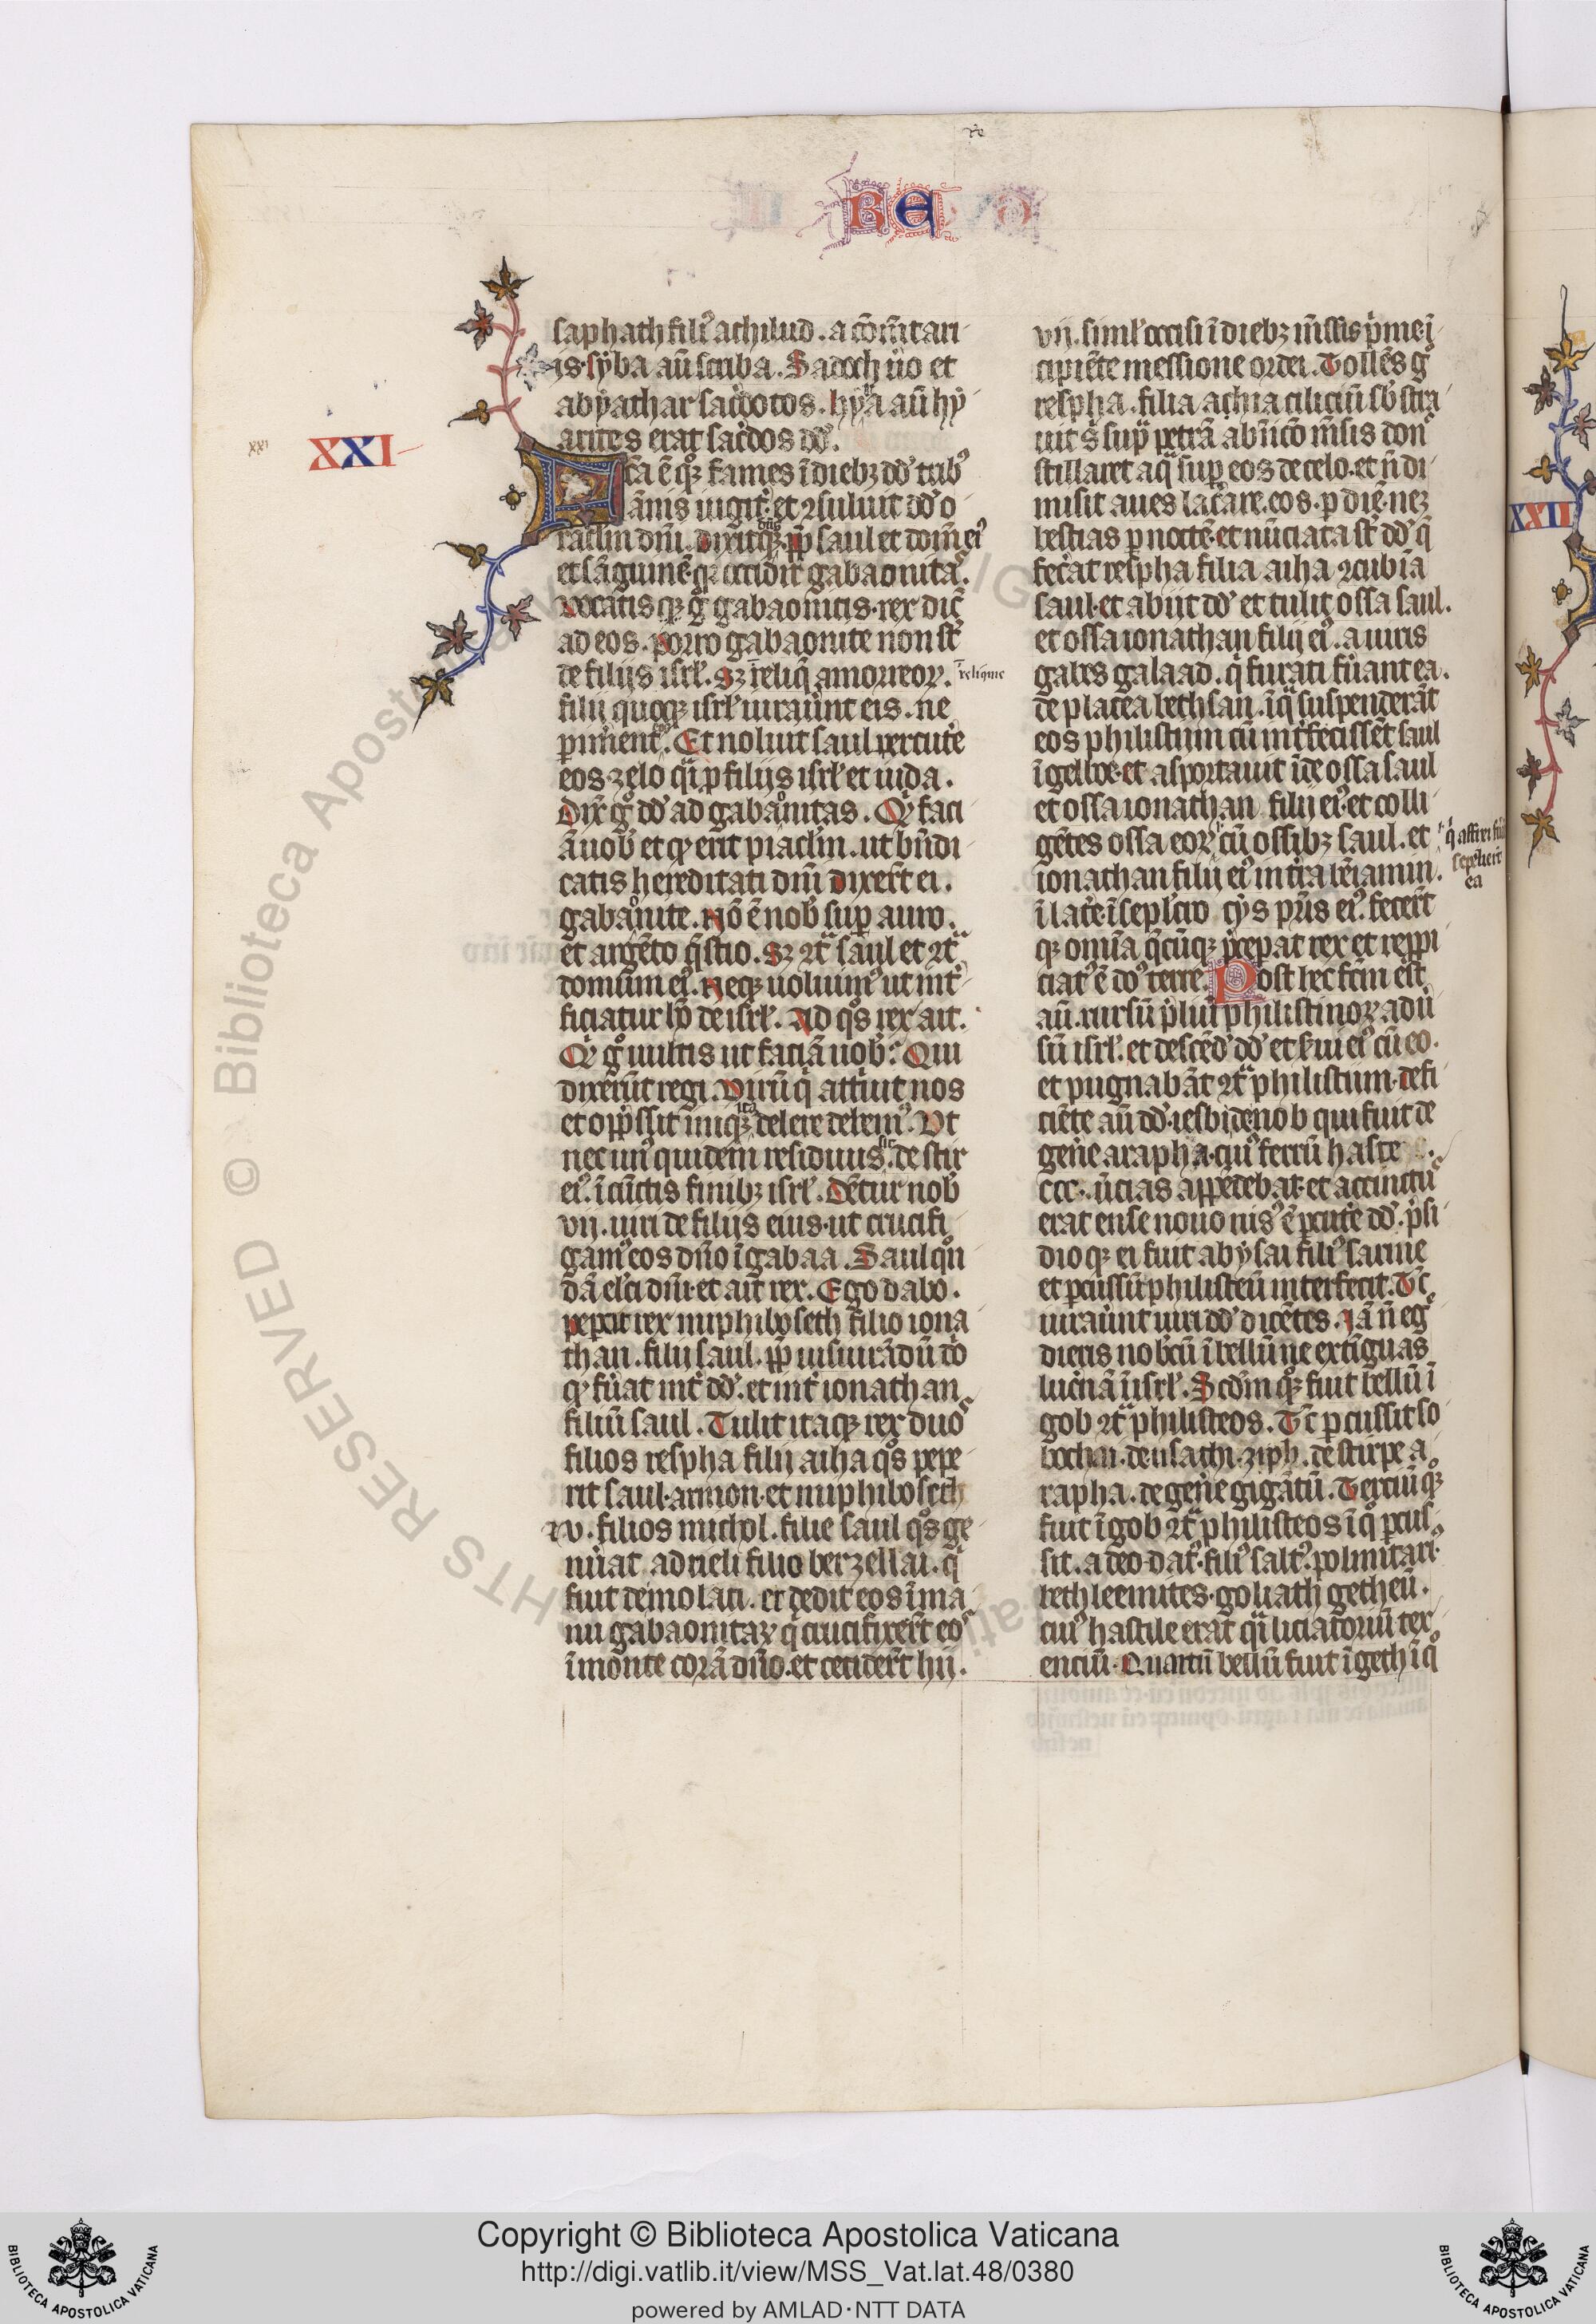 RE
saphath filiꝰ achilud . a cōm̄tari
is · syba aū scriba . Sadoch ū̉o et
abyathar sac̉dotes . hyra aū hy
arites erat sac̉dos dd̉ .
XXI
Fc̄a ē qͦꝫ fames ī diebꝫ dd̉ tribꝰ
ānis iugit̉ . et ꝯsuluit dd̉ o
raclm̄ dn̄i . dixitqꝫ dn̄s . ꝓp̄ saul et dom̄ eiꝰ
et sāguinē . qꝛ occidit gabaonitas .
Vocatis qꝫ gͦ gabaonitis . rex dix̄
ad eos . porro gabaonite non st̄
de filijs isrl̄ . Sꝫ reliq̄ amorreoꝝ . reliquie
filij quoqꝫ isrl̄ iurau̓nt eis . ne
ꝑim̓ent̉ . Et noluit saul ꝑcut̓e
eos zelo qͣi ꝓ filijs isrl̄ et iuda .
Dix̄ gͦ dd̉ ad gabaonitas . Qͥd faci
ā uob̄ et qͥd erit piaclm̄ . ut bn̄di
catis hereditati dn̄i dixer̄t ei .
gabaonite . Nō ē nob̄ suꝑ auro .
et argēto q̄stio . Sꝫ ꝯtͣ saul et ꝯtͣ
domum eiꝰ . Neqꝫ uolumꝰ ut int̓
ficiatur hō de isrl̄ . Ad qͦs rex ait .
Qͥd gͦ uultis ut faciā uob̄ . Qui
dixerūt regi . Virū qͥ attriuit nos
et opp̄ssit iniqꝫ ita delere delem̄ꝰ . Vt
nec unꝰ quidem residuus sit . de stir
eiꝰ . ī cūctis finibꝫ isrl̄ . Dētur nob̄
vij . uiri de filijs eius . ut crucifi
gamꝰ eos dn̄o ī gabaa . Saul qͦn
dā elc̄i dn̄i . et ait rex . Ego dabo .
peꝑcit rex miphiboseth filio iona
than . filij saul . ꝓp̄ iusiurādū dō
qͦd fu̓at int̓ dd̉ . et int̓ ionathan
filiū saul . Tulit itaqꝫ rex duos
filios respha filij aiha qͦs pepe
rit saul . armon . et miphiboseth
⁊ v . filios michol . filie saul qͦs ge
nu̓at . adrieli filio berzellai . qͥ
fuit de molati . et dedit eos ī ma
nu gabaonitaꝝ qͥ crucifixer̄t eos
ī monte corā dn̄o . et cecider̄t hij .
vij . siml̄ occisi ī diebꝫ m̄ssis pͥme ī
cipiēte messione ordei . Tollēs gͦ
respha . filia achia ciliciū sb̄stra
uit s̄ suꝑ petrā ab īicō m̄sis donͨ
stillaret aqͣ suꝑ eos de celo . et n̄ di
misit aues lac̓are . eos . ꝑ diē . neꝫ
bestias ꝑ noctē . et nūciata st̄ dd̉ q̄
fec̓at respha filia aiha ꝯcubīa
saul . et abijt dd̉ et tulit ossa saul .
et ossa ionathan filij eiꝰ . a uiris
gabes galaad . qͥ furati fu̓ant ea .
de platea bethsan . ī qͣ suspenderāt
eos philistiim cū int̓fecissēt saul
ī gelboe . et asportauit īde ossa saul
et ossa ionathan filij eiꝰ . et colli
gētes ossa eoꝝ cū ossibꝫ saul . et
qͥ affixi fūt
sepelierūt
ea
ionathan filij eiꝰ in tͣra beniamin .
ī lat̓e . ī seplc̄ro cys pr̄is eiꝰ . fecer̄t
qꝫ omīa q̄cūqꝫ p̄cepat rex et repp̄i
ciatꝰ ē dōꝰ terre . Post hec fcm̄ est
aū . rursū p̄liū philistinoꝝ . adū̓
sū isrl̄ . et descēd̉ dd̉ et s̓ui eiꝰ cū eo .
et pugnabāt ꝯtͣ philistiim . defi
ciēte aū dd̉ . iesbidenob qui fuit de
gen̓e arapha . cuiꝰ ferrū haste .
ccc . ūcias appēdebat . et accinctus
erat ense nouo nisꝰ ē ꝑcut̓e dd̉ . p̄si
dioqꝫ ei fuit abysai filiꝰ saruie
et ꝑcussū philisteū interfecit . Tc̄
iurau̓nt uiri dd̉ dicētes . Iā n̄ egͤ
dieris nob̄cū ī bellū ne extīguas
luc̓nā ī isrl̄ . Scd̄m qͦꝫ fuit bellū ī
gob ꝯtͣ philisteos . Tc̄ ꝑcussit so
bochai . de usathi . ziph . de stirpe a
rapha . de gen̓e gigātū . Terciū qͦꝫ
fuit ī gob ꝯtͣ philisteos ī qͦ ꝑcus
sit . adeodatꝰ . filiꝰ saltꝰ . polimitariꝰ
bethleemites . goliath getheū .
cuiꝰ hastile erat qͣi liciatoriū tex
enciū . Quartū bellū fuit ī geth ī qͦ
XXII
© Biblioteca Apostolica Vaticana
RIGHTS RESERVED
Copyright © Biblioteca Apostolica Vaticana
http://digi.vatlib.it/view/MSS_Vat.lat.48/0380
powered by AMLAD·NTT DATA
BIBLIOTECA APOSTOLICA VATICANA
BIBLIOTECA APOSTOLICA VATICANA